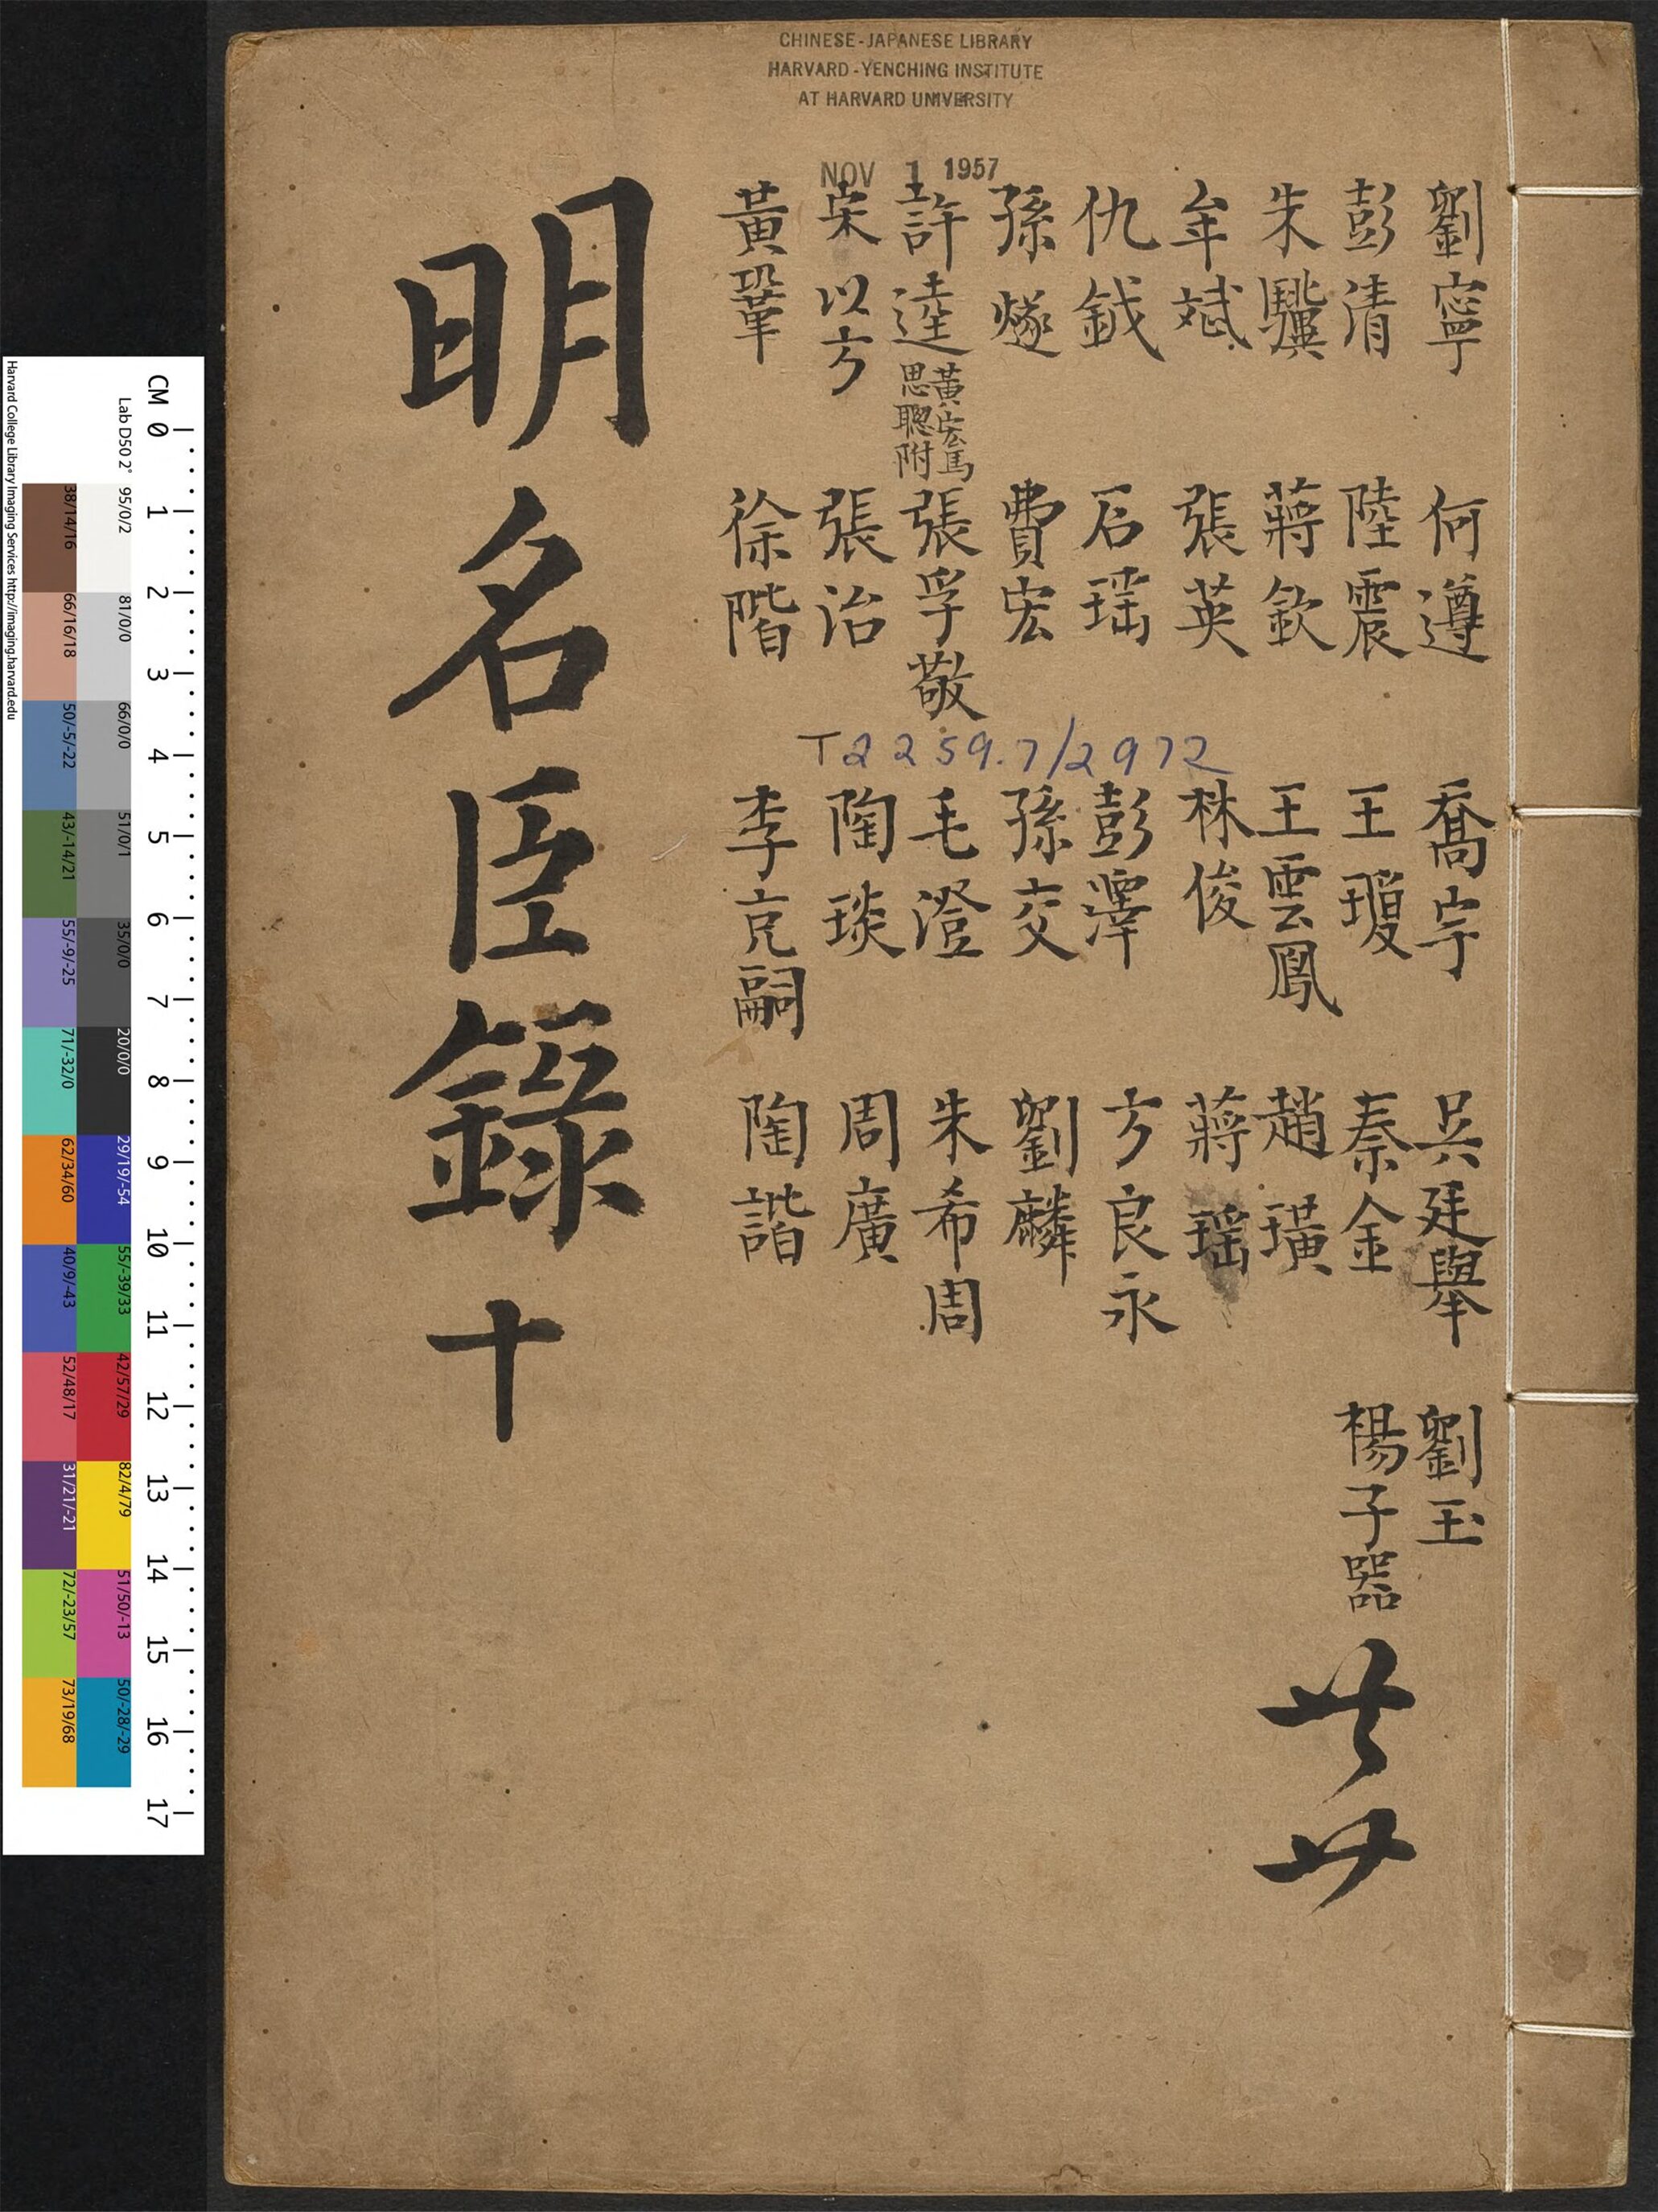 CHINESE-JAPANESE LIBRARY
HARVARD-YENCHING INSTITUTE
AT HARVARD UNIVERSITY
NOV 1 1957
劉寧
彭清
朱驥
牟斌
仇鉞
孫燧
許逵 黃宏馬思聰附
宋以方
黃鞏
何遵
陸震
蔣欽
張英
石瑶
費宏
張孚敬
張治
徐階
T2259.7/2972
喬宇
王瓊
王雲鳳
林俊
彭澤
孫交
毛澄
陶琰
李克嗣
吳廷舉
秦金
趙璜
蔣瑶
方良永
劉麟
朱希周
周廣
陶諧
劉玉
楊子器
共廿
明名臣錄十
CM 0 1 2 3 4 5 6 7 8 9 10 11 12 13 14 15 16 17
Lab D50 2° 95/0/2 81/0/0 66/0/0 51/0/1 35/0/0 20/0/0 29/19/-54 55/-39/33 42/57/29 82/4/79 51/50/-13 50/-28/-29
38/14/16 66/16/18 50/-5/-22 43/-14/21 55/-9/-25 71/-32/0 62/34/60 40/9/-43 52/48/17 31/21/-21 72/-23/57 73/19/68
Harvard College Library Imaging Services http://imaging.harvard.edu